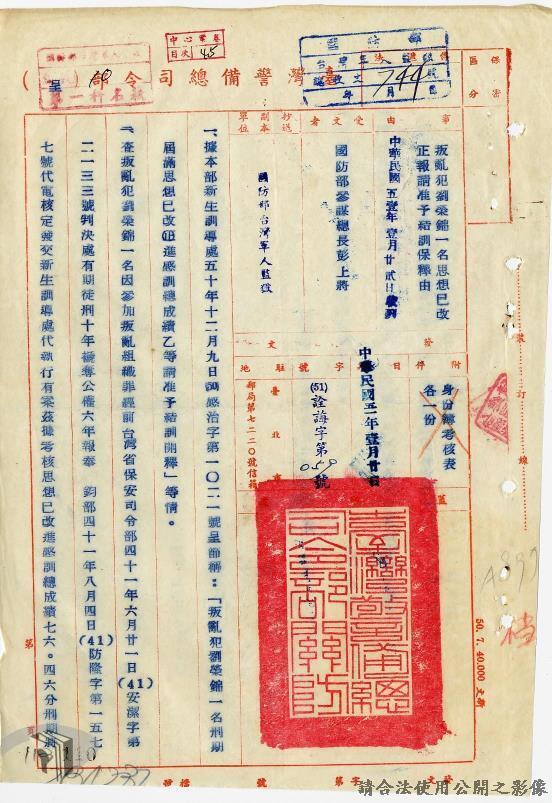 中心業務
目次 45
第一科名核
軍法處
744
年 月 日
保密
區分
呈
臺灣警備總司令部
事由
叛亂犯劉榮錦一名思想已改
正報請准予結訓保釋由
中華民國五壹年壹月廿貳日
受文者
國防部參謀總長彭上將
抄送
副本
單位
國防部台灣軍人監獄
附件
身份簿考核表
各一份
發文
日期
中華民國五一年壹月廿日
字號
(51)詮誨字第059號
駐地
臺北市
郵局第七二二〇號信箱
臺灣警備總司令部關防
一、據本部新生訓導處五十年十二月九日訓感治字第一〇二一號呈節稱：「叛亂犯劉榮錦一名刑期
屆滿思想已改正進感訓總成績乙等請准予結訓開釋」等情。
二、查叛亂犯劉榮錦一名因參加叛亂組織罪經前台灣省保安司令部四十一年六月廿一日(41)安潔字第
二一三三號判決處有期徒刑十年褫奪公權六年報奉 鈞部四十一年八月四日(41)防隆字第一五七
七號代電核定發交新生訓導處代執行有案茲據考核思想已改進感訓總成績七六．四六分刑期將
裝訂線
50.7.40.000
檔
第 頁
發文 字第 號
請合法使用公開之影像